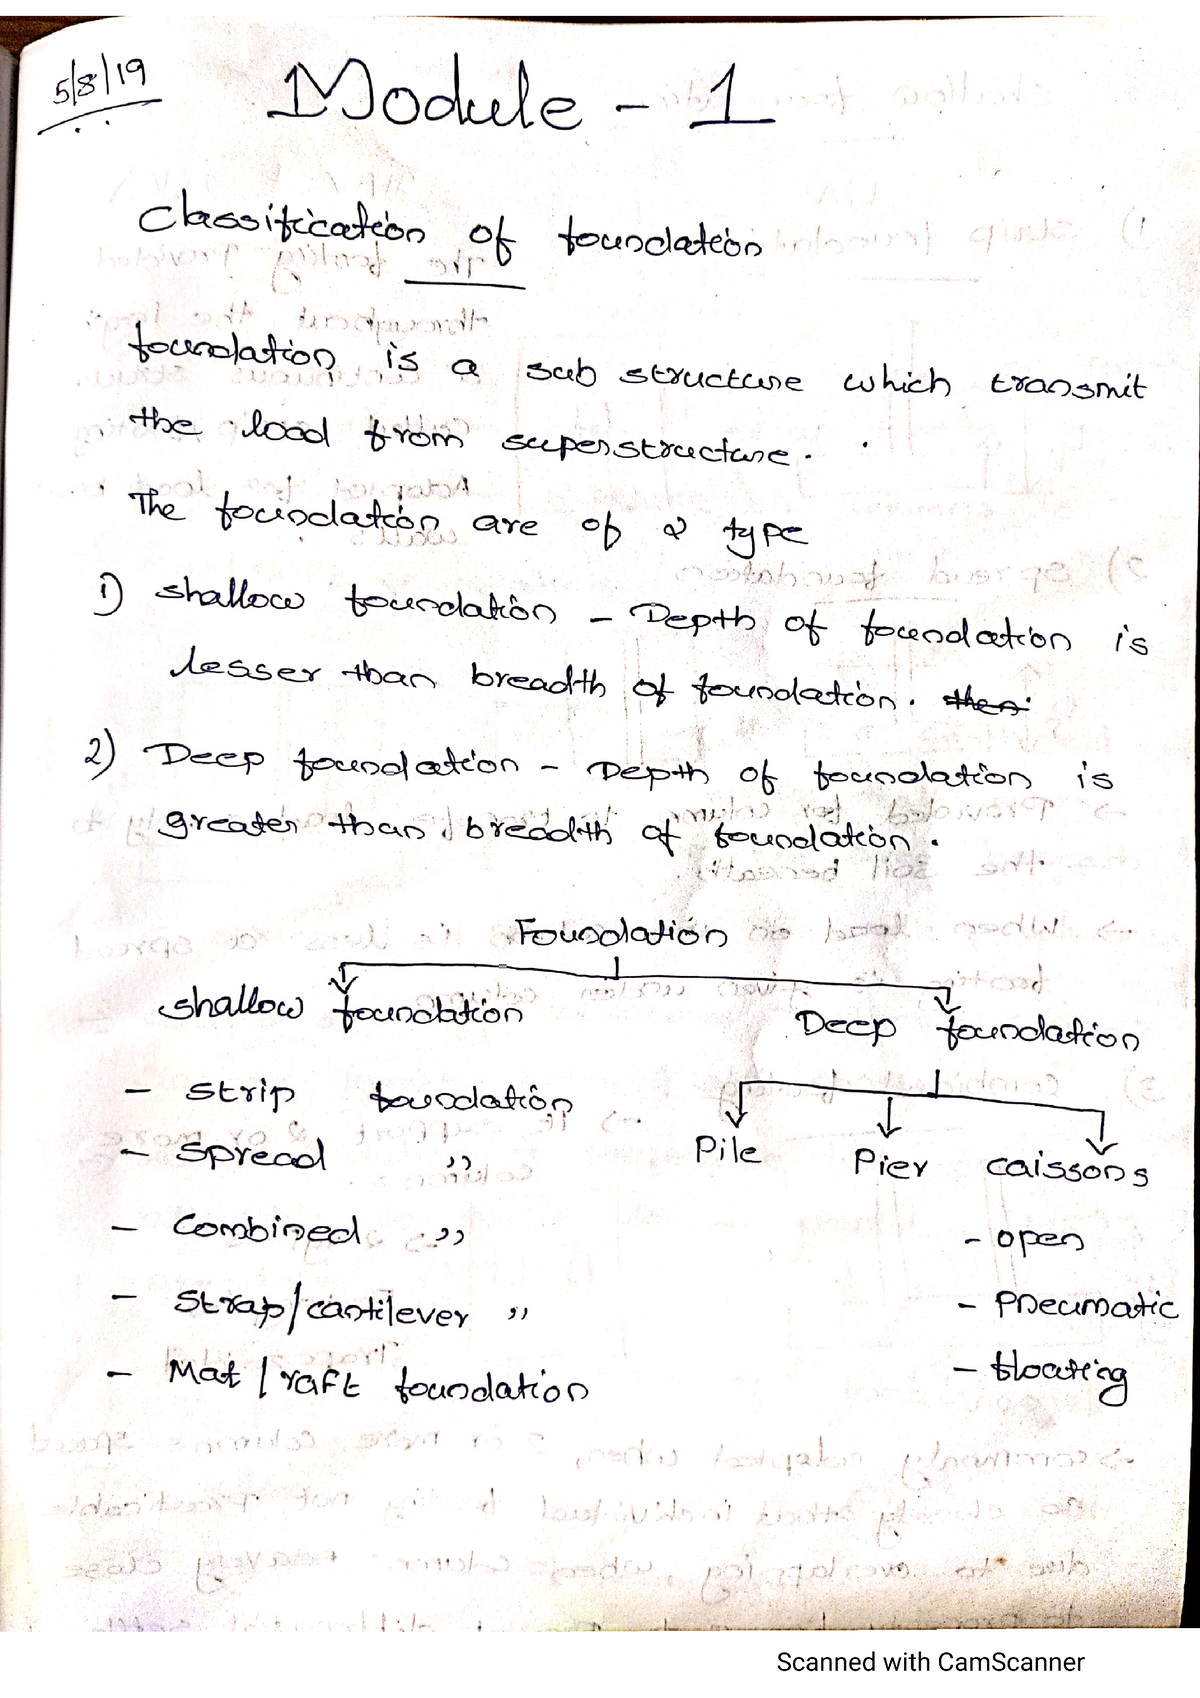 5/8/19
Module - 1
Classification of foundation
foundation is a sub structure which transmit
the load from superstructure.
The foundation are of 2 type
1) shallow foundation - Depth of foundation is
lesser than breadth of foundation. then
2) Deep foundation - Depth of foundation is
greater than breadth of foundation.
Foundation
shallow foundation
Deep foundation
- strip foundation
- spread ,,
- Combined ,,
- Strap/cantilever ,,
- Mat / raft foundation
Pile Pier caissons
- open
- Pneumatic
- floating
Scanned with CamScanner